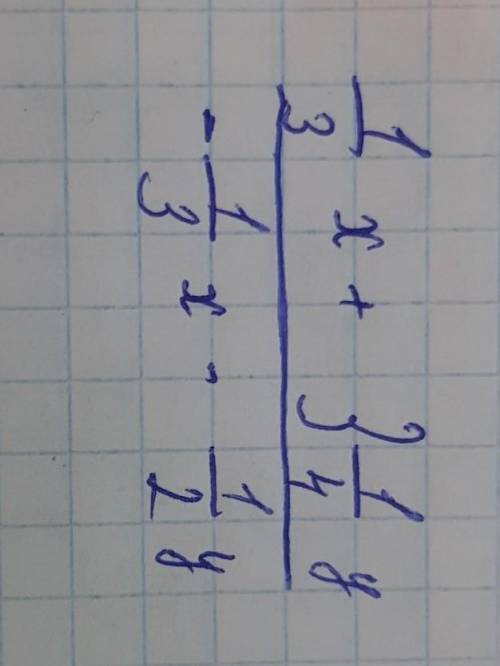 1/3 x + 3 1/4 y
- 1/3 x - 1/2 y